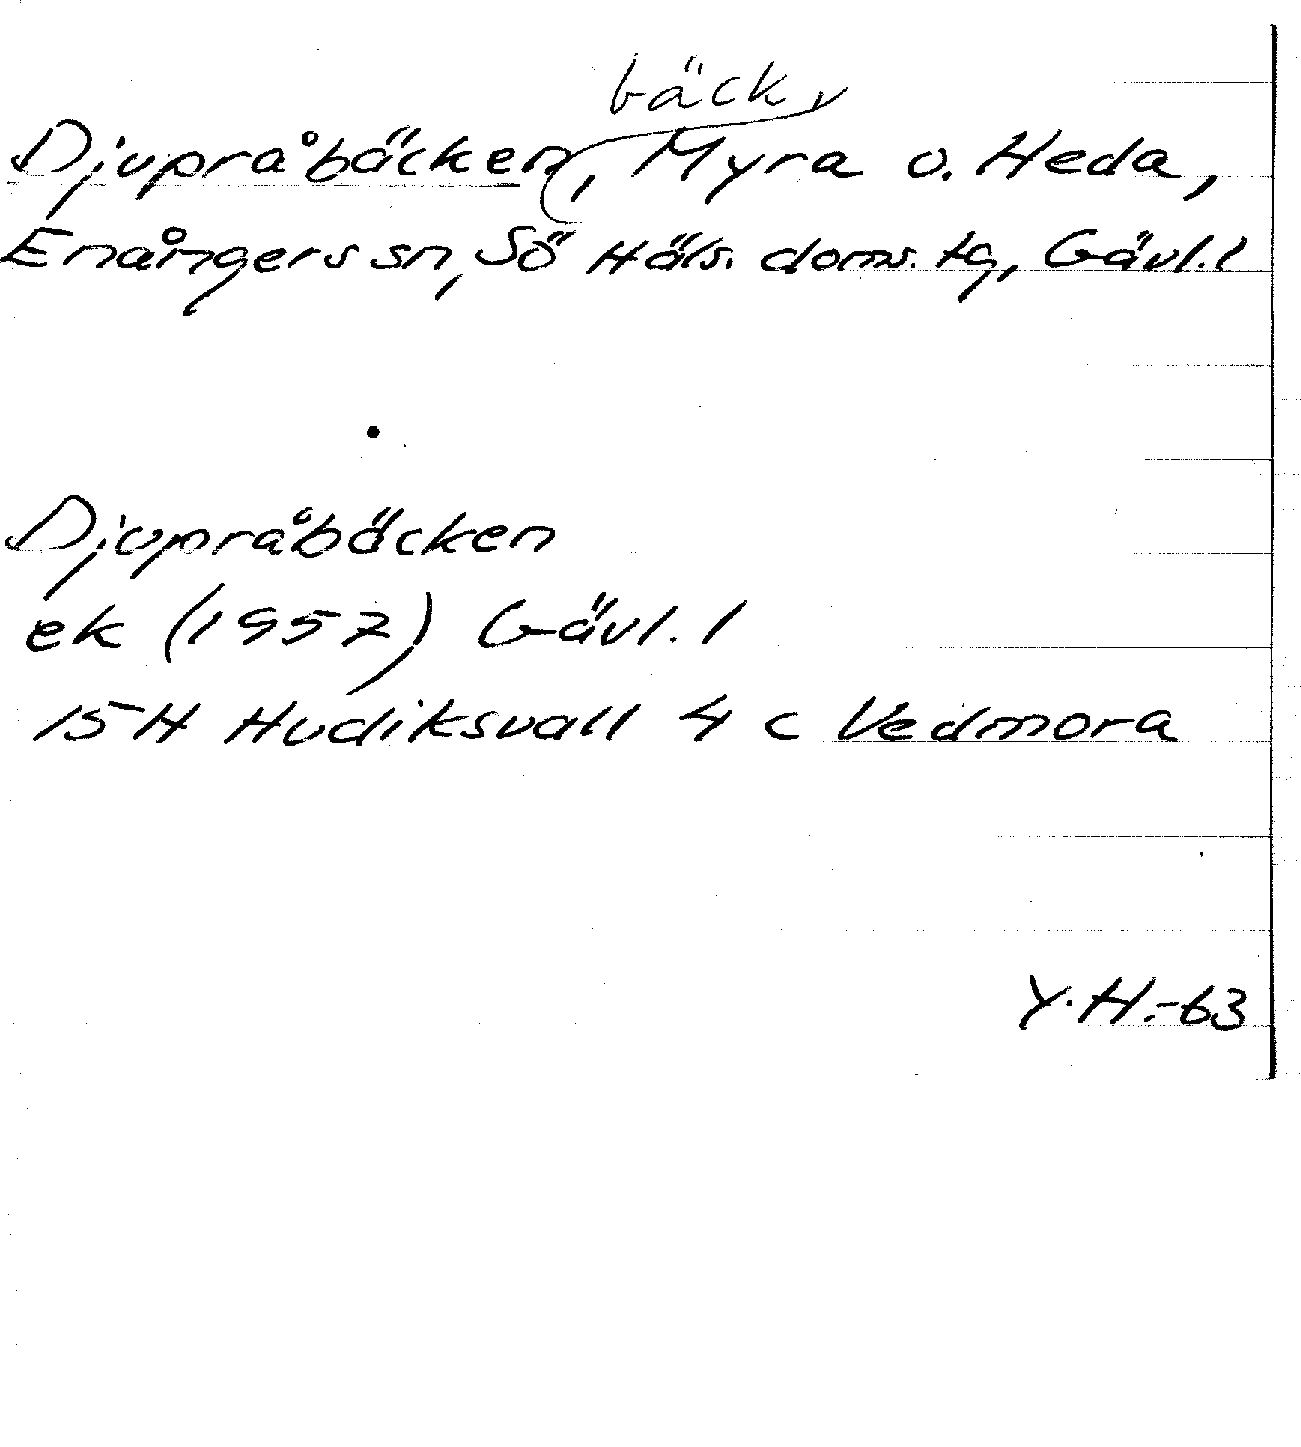 bäck,
Djupråbäcken, Myra o. Heda,
Enångers sn, Sö Häls. doms. tg, Gävl. l
Djupråbäcken
ek (1957) Gävl. l
15 H Hudiksvall 4 c Vedmora
Y. H. -63